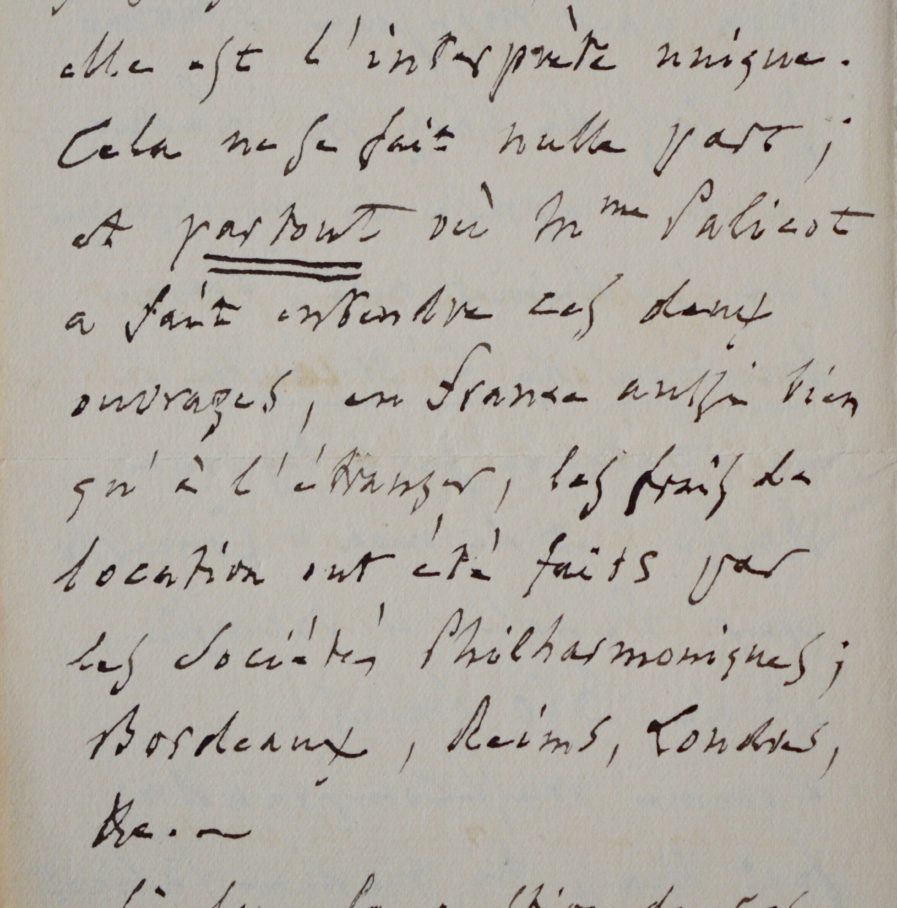 elle est l'interprète unique.
Cela ne se fait nulle part ;
et partout où Mme Palicot
a fait entendre ces deux
ouvrages, en France aussi bien
qu'à l'étranger, les frais de
location ont été faits par
les Sociétés Philharmoniques ;
Bordeaux, Reims, Londres,
&c. —